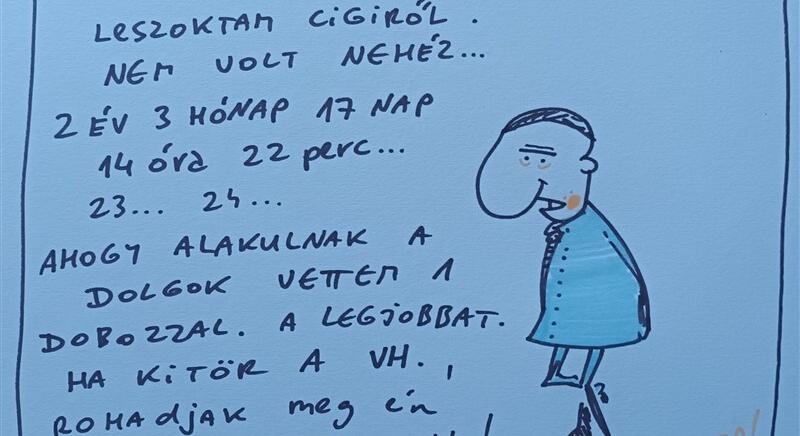 LESZOKTAM CIGIRŐL.
NEM VOLT NEHÉZ...
2 ÉV 3 HÓNAP 17 NAP
14 óra 22 perc...
23... 24...
AHOGY ALAKULNAK A
DOLGOK VETTEM 1
DOBOZZAL. A LEGJOBBAT.
HA KITÖR A VH.,
ROHADJAK meg én